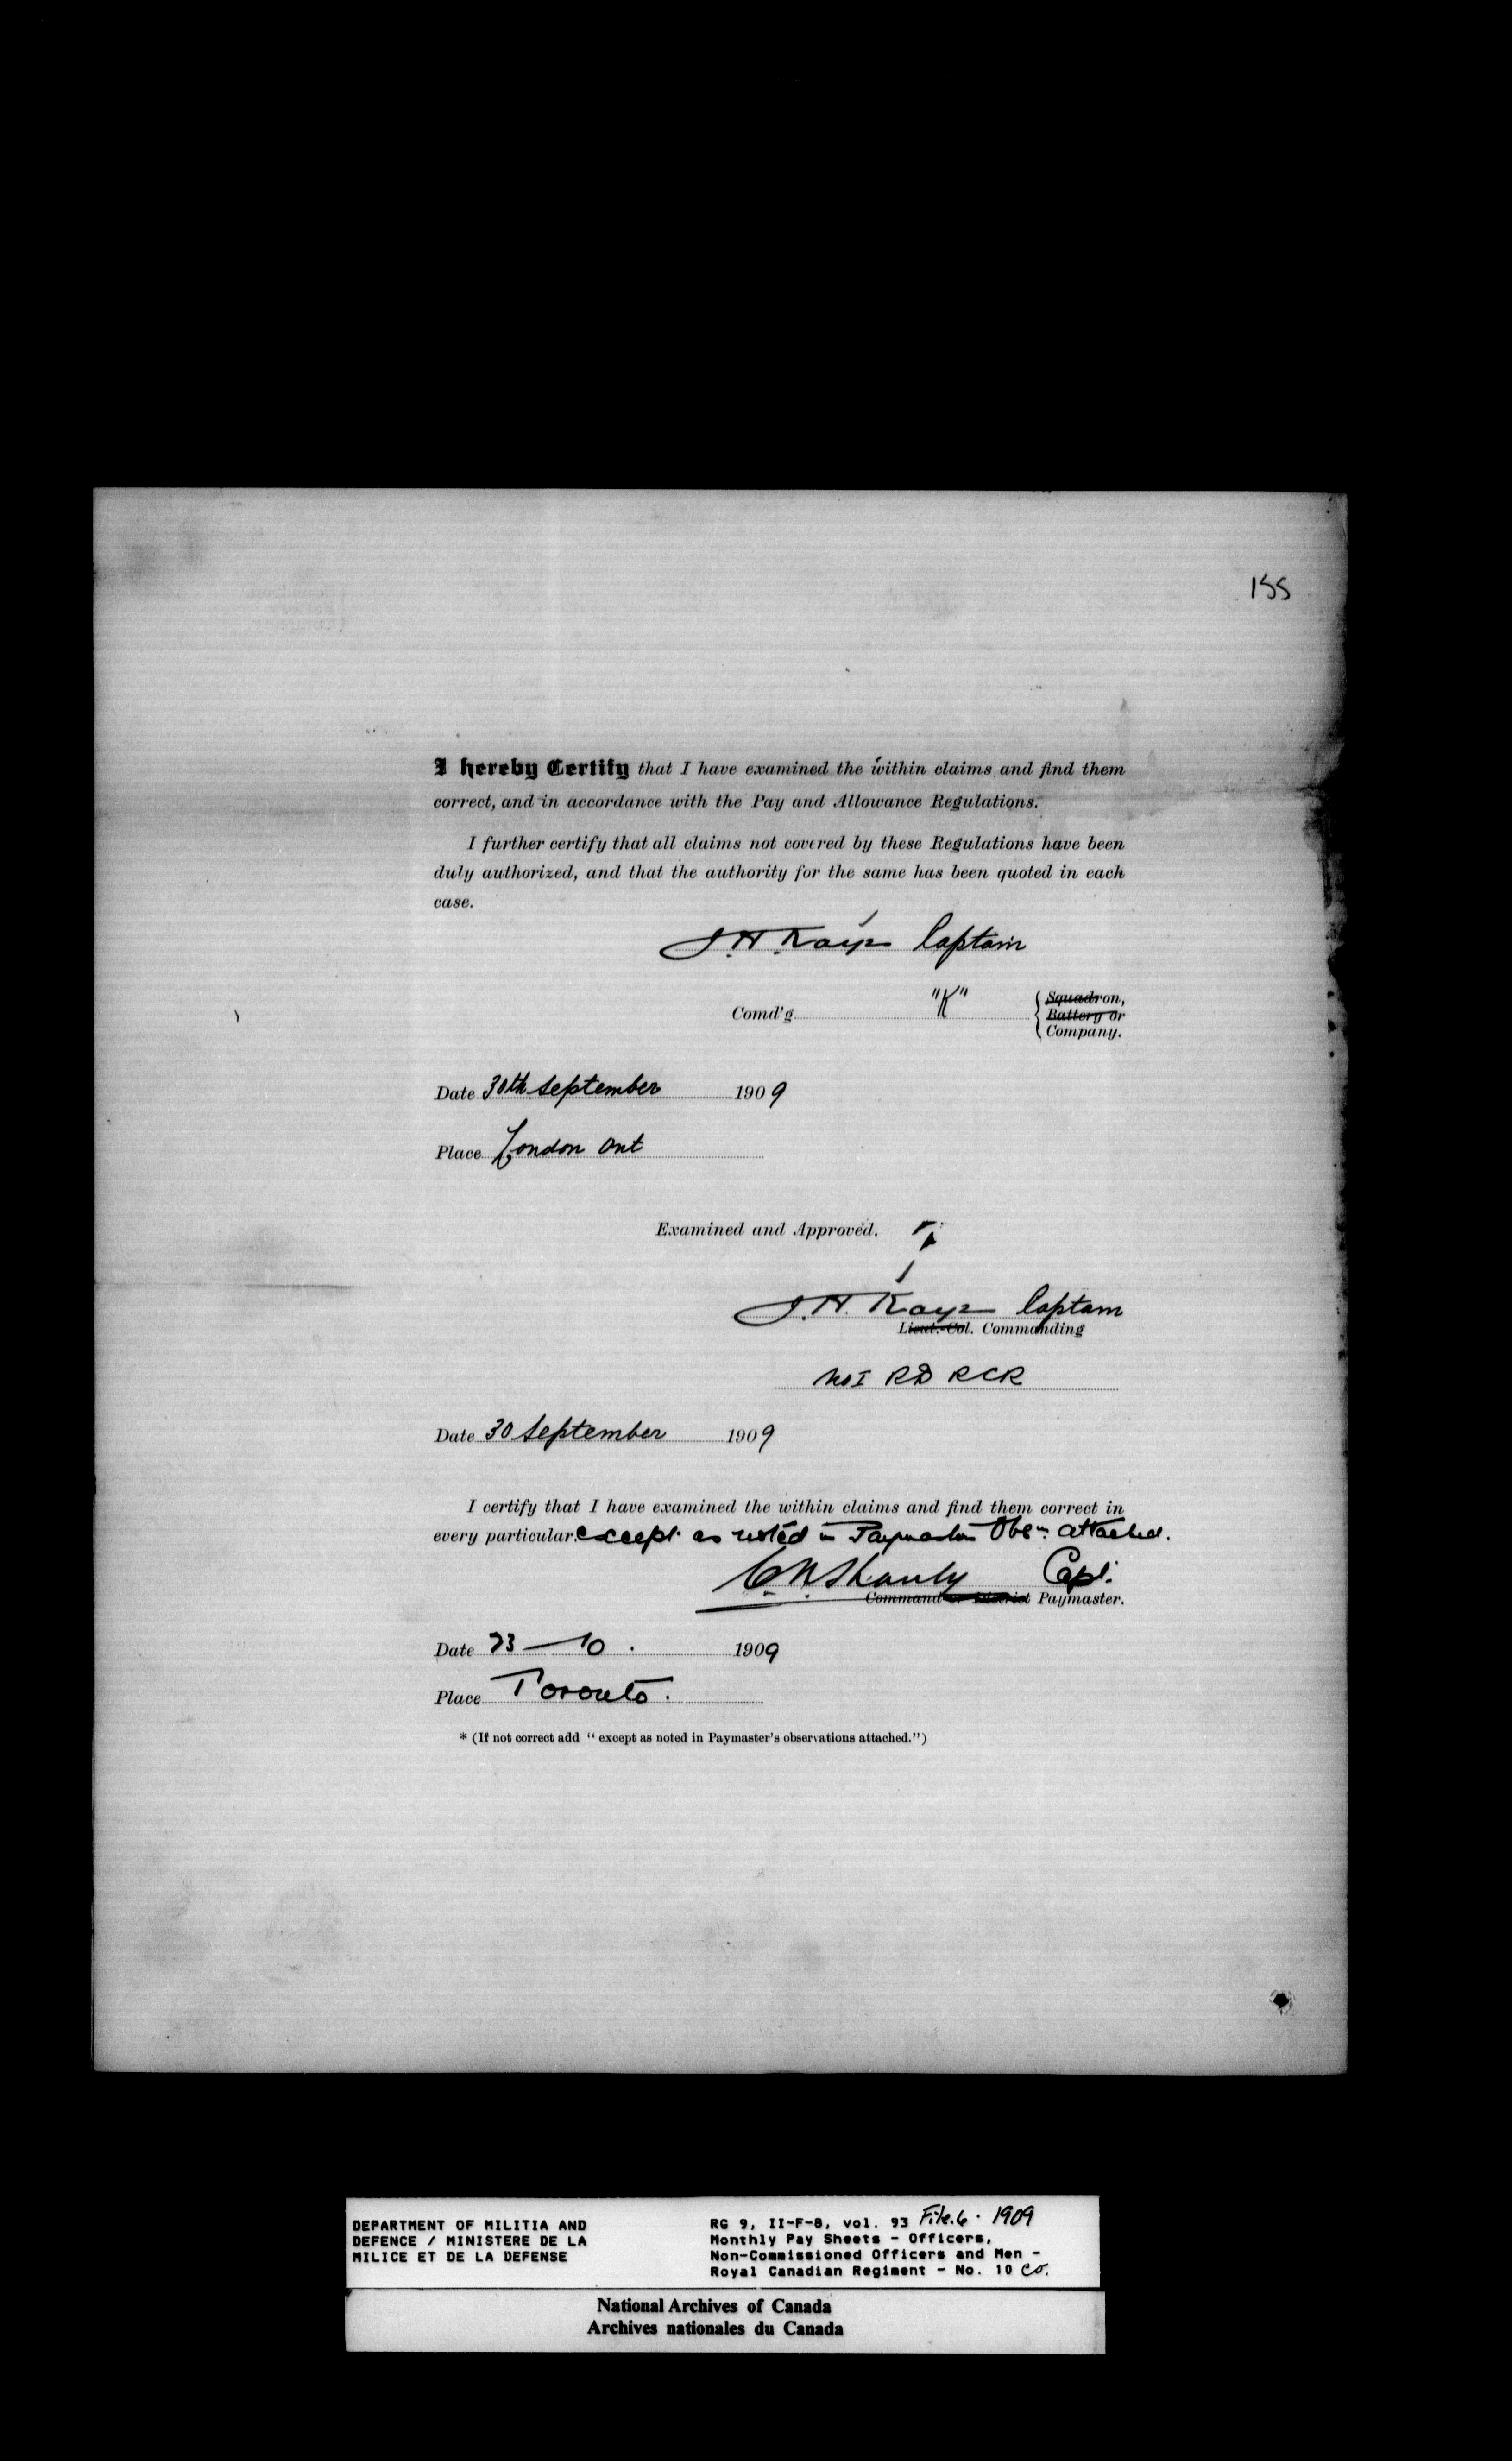 155
I hereby Certify that I have examined the within claims and find them
correct, and in accordance with the Pay and Allowance Regulations.
I further certify that all claims not covered by these Regulations have been
duly authorized, and that the authority for the same has been quoted in each
case.
J. H. Kaye Captain
Comd'g "K" { Squadron,
Battery or
Company.
Date 30th September 1909
Place London Ont
Examined and Approved.
J. H. Kaye Captain
Lieut.-Col. Commanding
No I RD RCR
Date 30 September 1909
I certify that I have examined the within claims and find them correct in
every particular. except as noted in Paymaster Obsns. attached.
C N Shanly Capt.
Command or District Paymaster.
Date 23 — 10 . 1909
Place Toronto.
* (If not correct add " except as noted in Paymaster's observations attached.")
DEPARTMENT OF MILITIA AND
DEFENCE / MINISTERE DE LA
MILICE ET DE LA DEFENSE
RG 9, II-F-8, vol. 93 File.6 . 1909
Monthly Pay Sheets - Officers,
Non-Commissioned Officers and Men -
Royal Canadian Regiment - No. 10 Co.
National Archives of Canada
Archives nationales du Canada